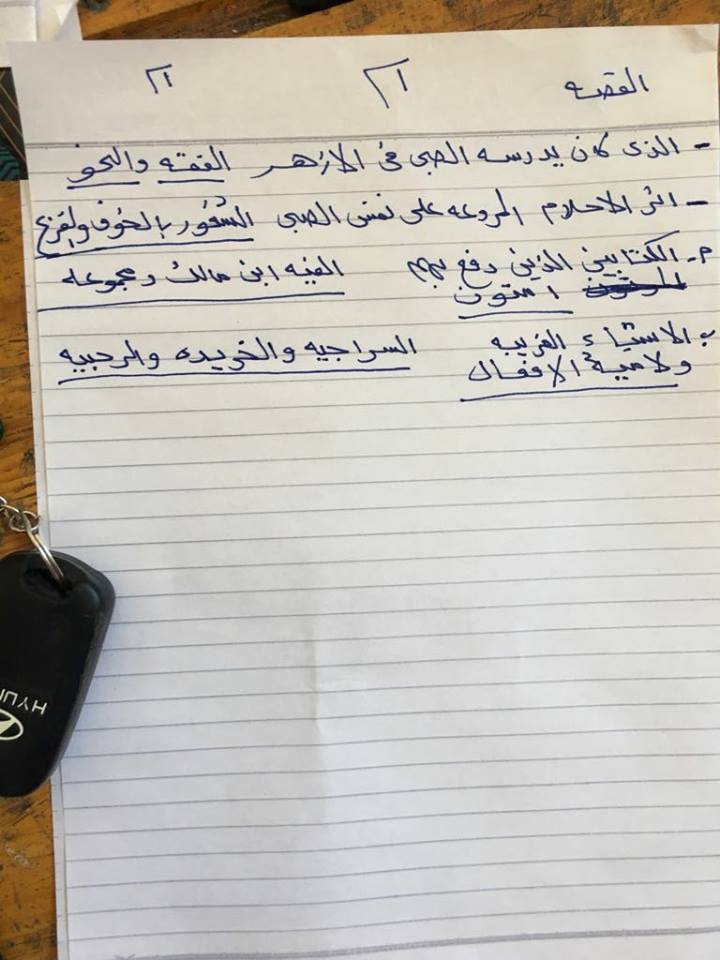 القصه ٢١ ٢١
- الذى كان يدرسه الصبى فى الازهر الفقه والنحو
- اثر الاحلام المروعه على نفس الصبى الشعور بالخوف والفزع
م- الكتابين الذين دفع بهم الفيه ابن مالك ومجموعه
امتون
ب الاشياء الغريبه السراجيه والخريده والرحبيه
ولامية الافعال
HYUN